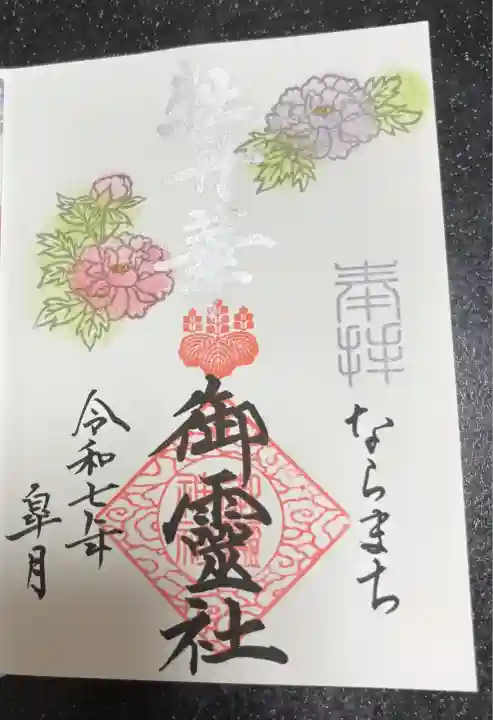 奉拝
ならまち
御靈社
令和七年
皐月